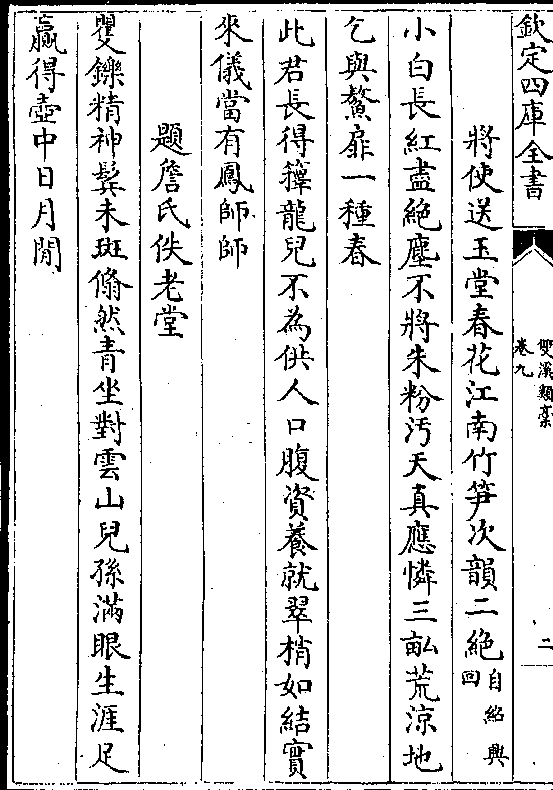 欽定四庫全書
雙溪類藁
卷九
二
將使送玉堂春花江南竹笋次韻二絶自紹興回
小白長紅盡絶塵不將朱粉汚天真應憐三畝荒涼地
乞與鰲扉一種春
此君長得籜龍兒不為供人口腹資養就翠梢如結實
來儀當有鳳師師
題詹氏佚老堂
矍鑠精神鬂未斑翛然青坐對雲山兒孫滿眼生涯足
贏得壺中日月閒